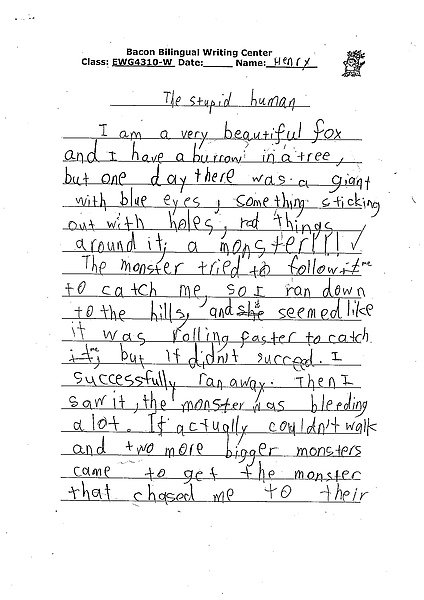 Bacon Bilingual Writing Center
Class: EWG4310-W Date:_____ Name: Henry
The stupid human
I am a very beautiful fox
and I have a burrow in a tree,
but one day there was a giant
with blue eyes, something sticking
out with holes, red things
around it; a monster!!! ✓
The monster tried to follow it me
to catch me, so I ran down
to the hills, and she it seemed like
it was rolling faster to catch
it me; but it didn't succeed. I
successfully ran away. Then I
saw it, the monster was bleeding
a lot. It actually couldn't walk
and two more bigger monsters
came to get the monster
that chased me to their